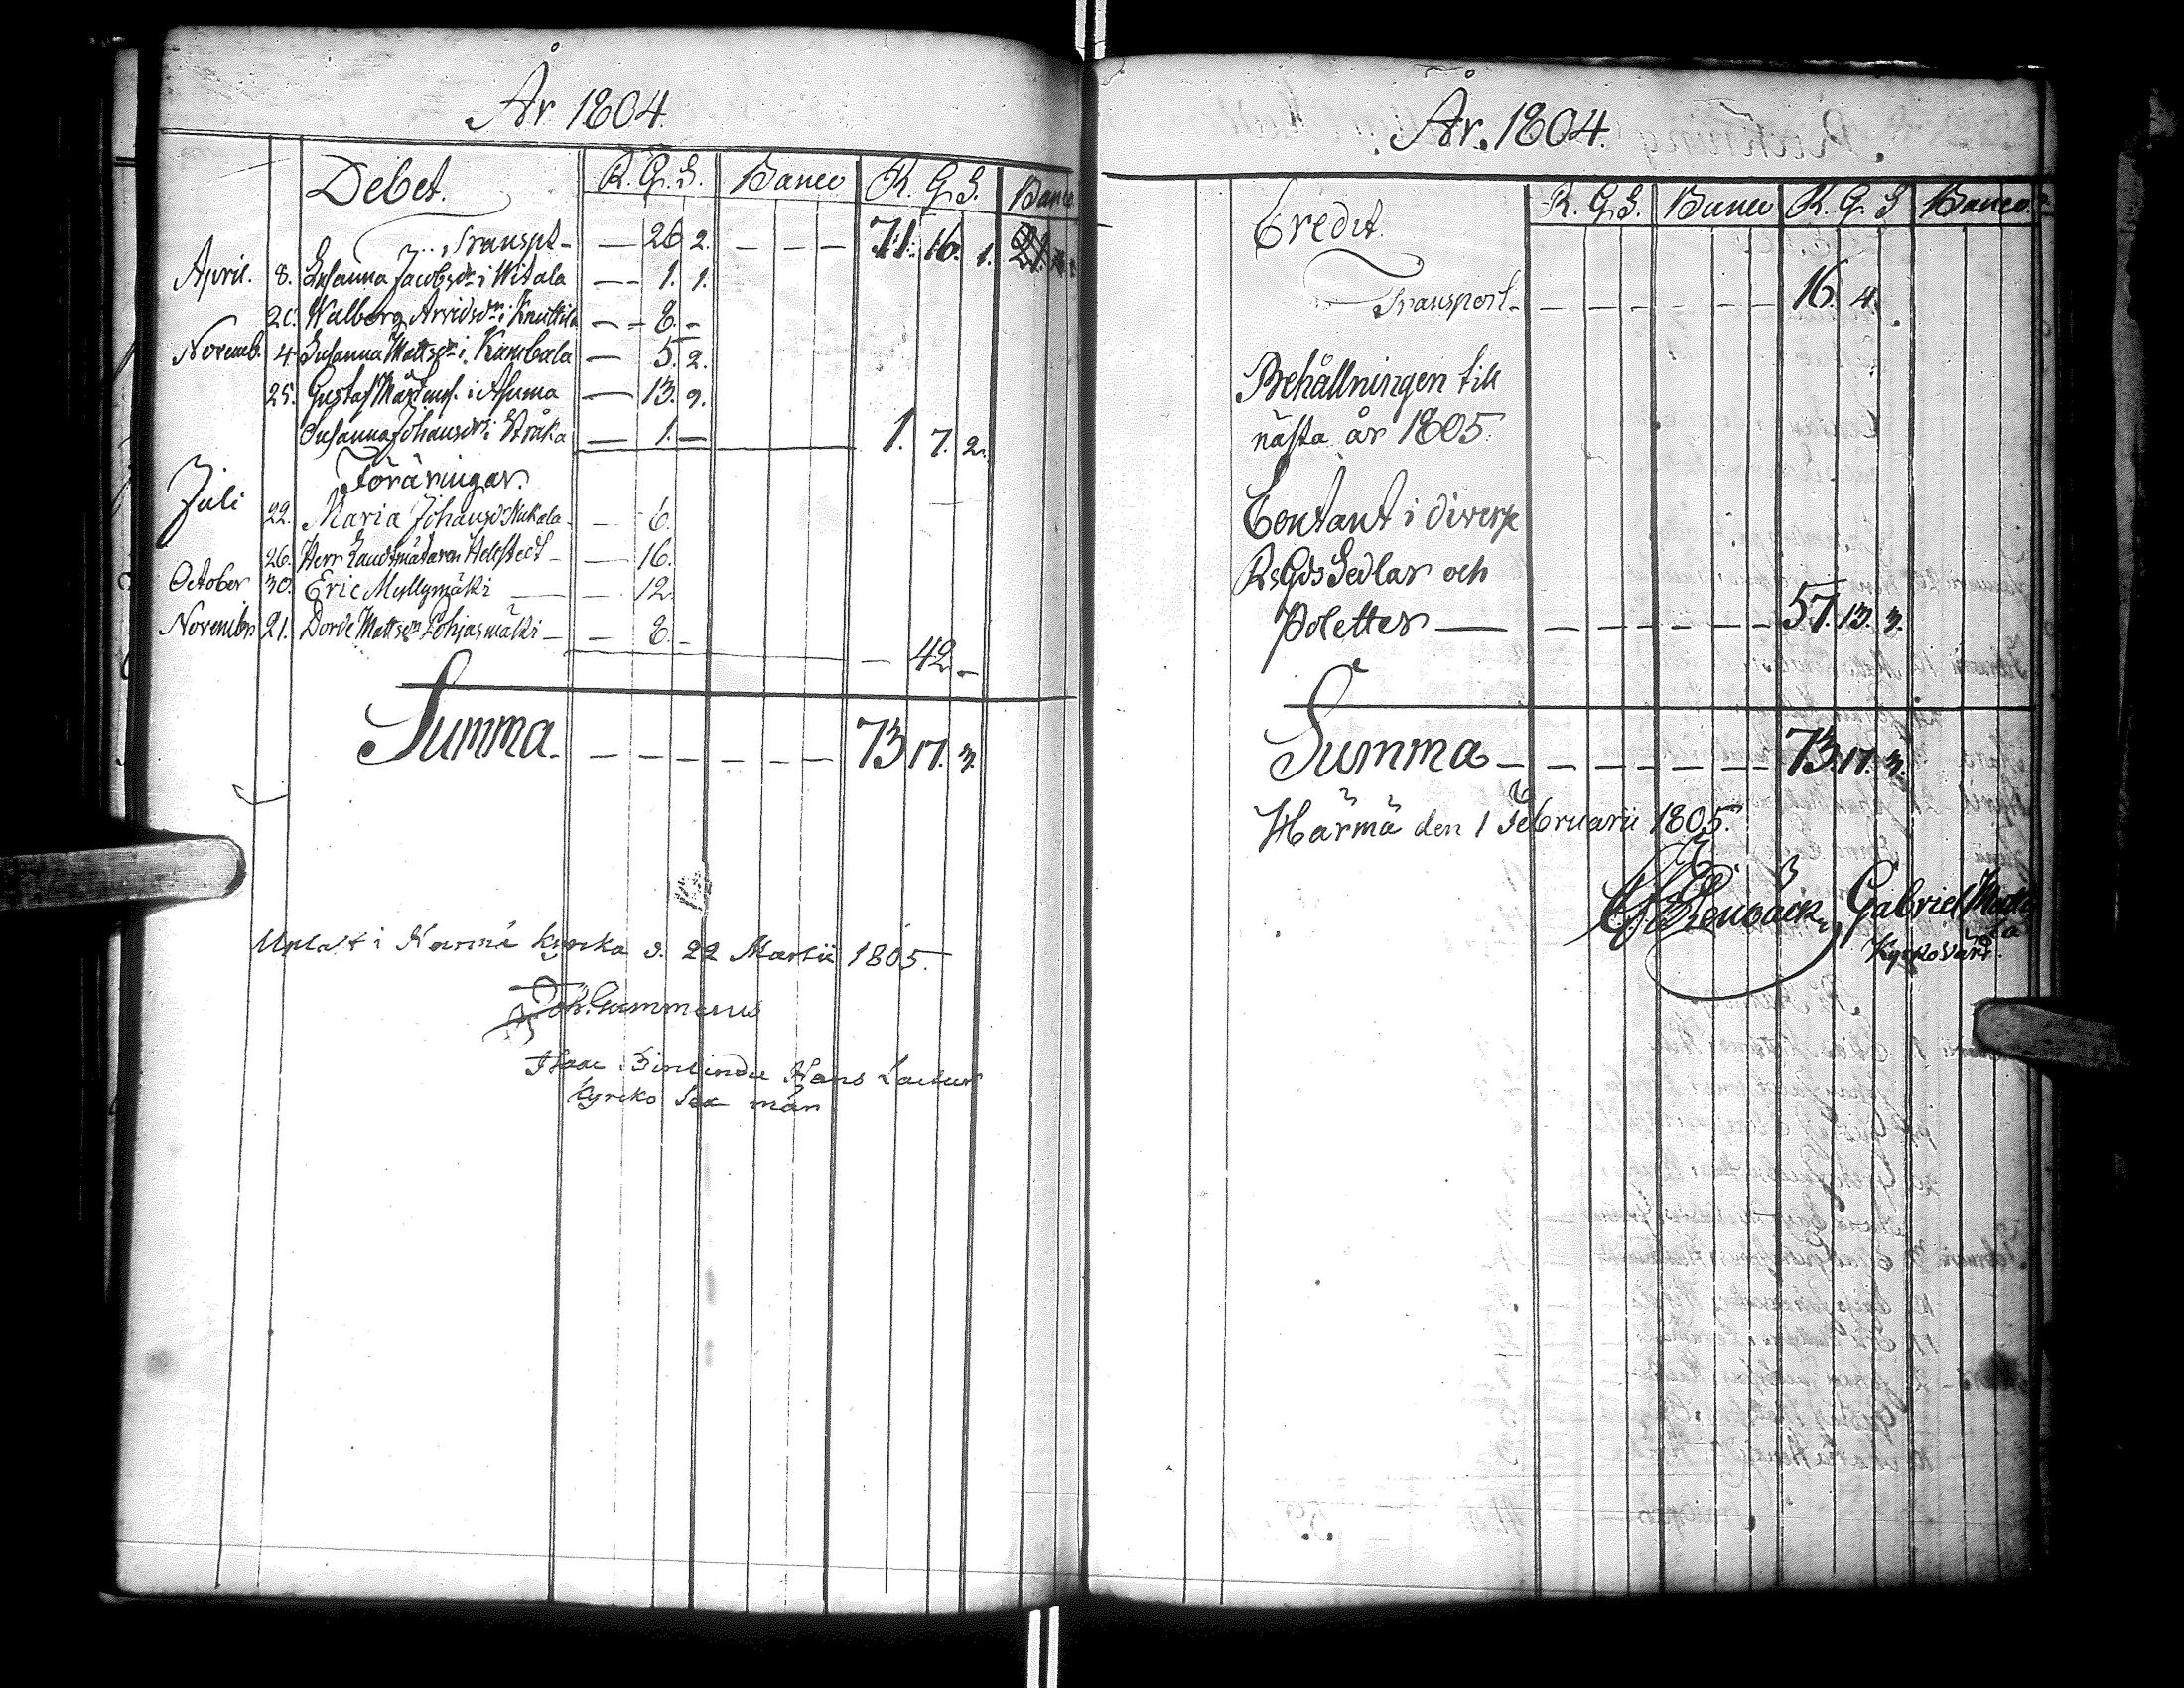 År 1804.
Debet. R. G. S. Banco R. G. S. Banco
Transpt — 26 2. — — — 71. 16. 1.
April. 8. Susanna Jacobsdr i Witala — 1. 1.
20. Walborg Arvidsdr i Knuttila — 8. -
Novemb. 4. Susanna Mattsdr i Kambala — 5. 2.
25. Gustaf Mårtenss. i Asuma — 13. 9.
Susanna Johansdr i Stråka — 1. — 1. 7. 2.
Föräringar.
Juli 22. Maria Johansdr Kukala — 6.
26. Herr Landtmätaren Hellstedt — 16.
October 30. Eric Myllymäki — 12.
Novembr 21. Dorde Mattsdr Lohjasmäki — 8. -
— 42 -
Summa. — — — — — — 73 17. 3.
Uplast i Härmä kyrka d. 22 Martii 1805.
Joh. Gummerus
Isaac Hans
kyrko Sex män
År. 1804.
Credit. R. G. S. Banco R. G. S Banco.
Transport — — — — — — 16. 4.
Behållningen till
nästa år 1805.
Contant i diverse
RsGds Sedlar och
Poletter — — — — — — — 57. 13. 3.
Summa — — — — — — — 73. 17. 3.
Härmä den 1 Februarii 1805.
Stenbäck Gabriel
Kyrkovärd.